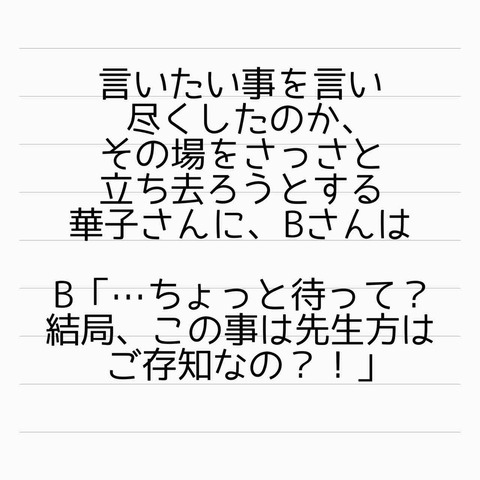 言いたい事を言い
尽くしたのか、
その場をさっさと
立ち去ろうとする
華子さんに、Bさんは
B「…ちょっと待って？
結局、この事は先生方は
ご存知なの？！」